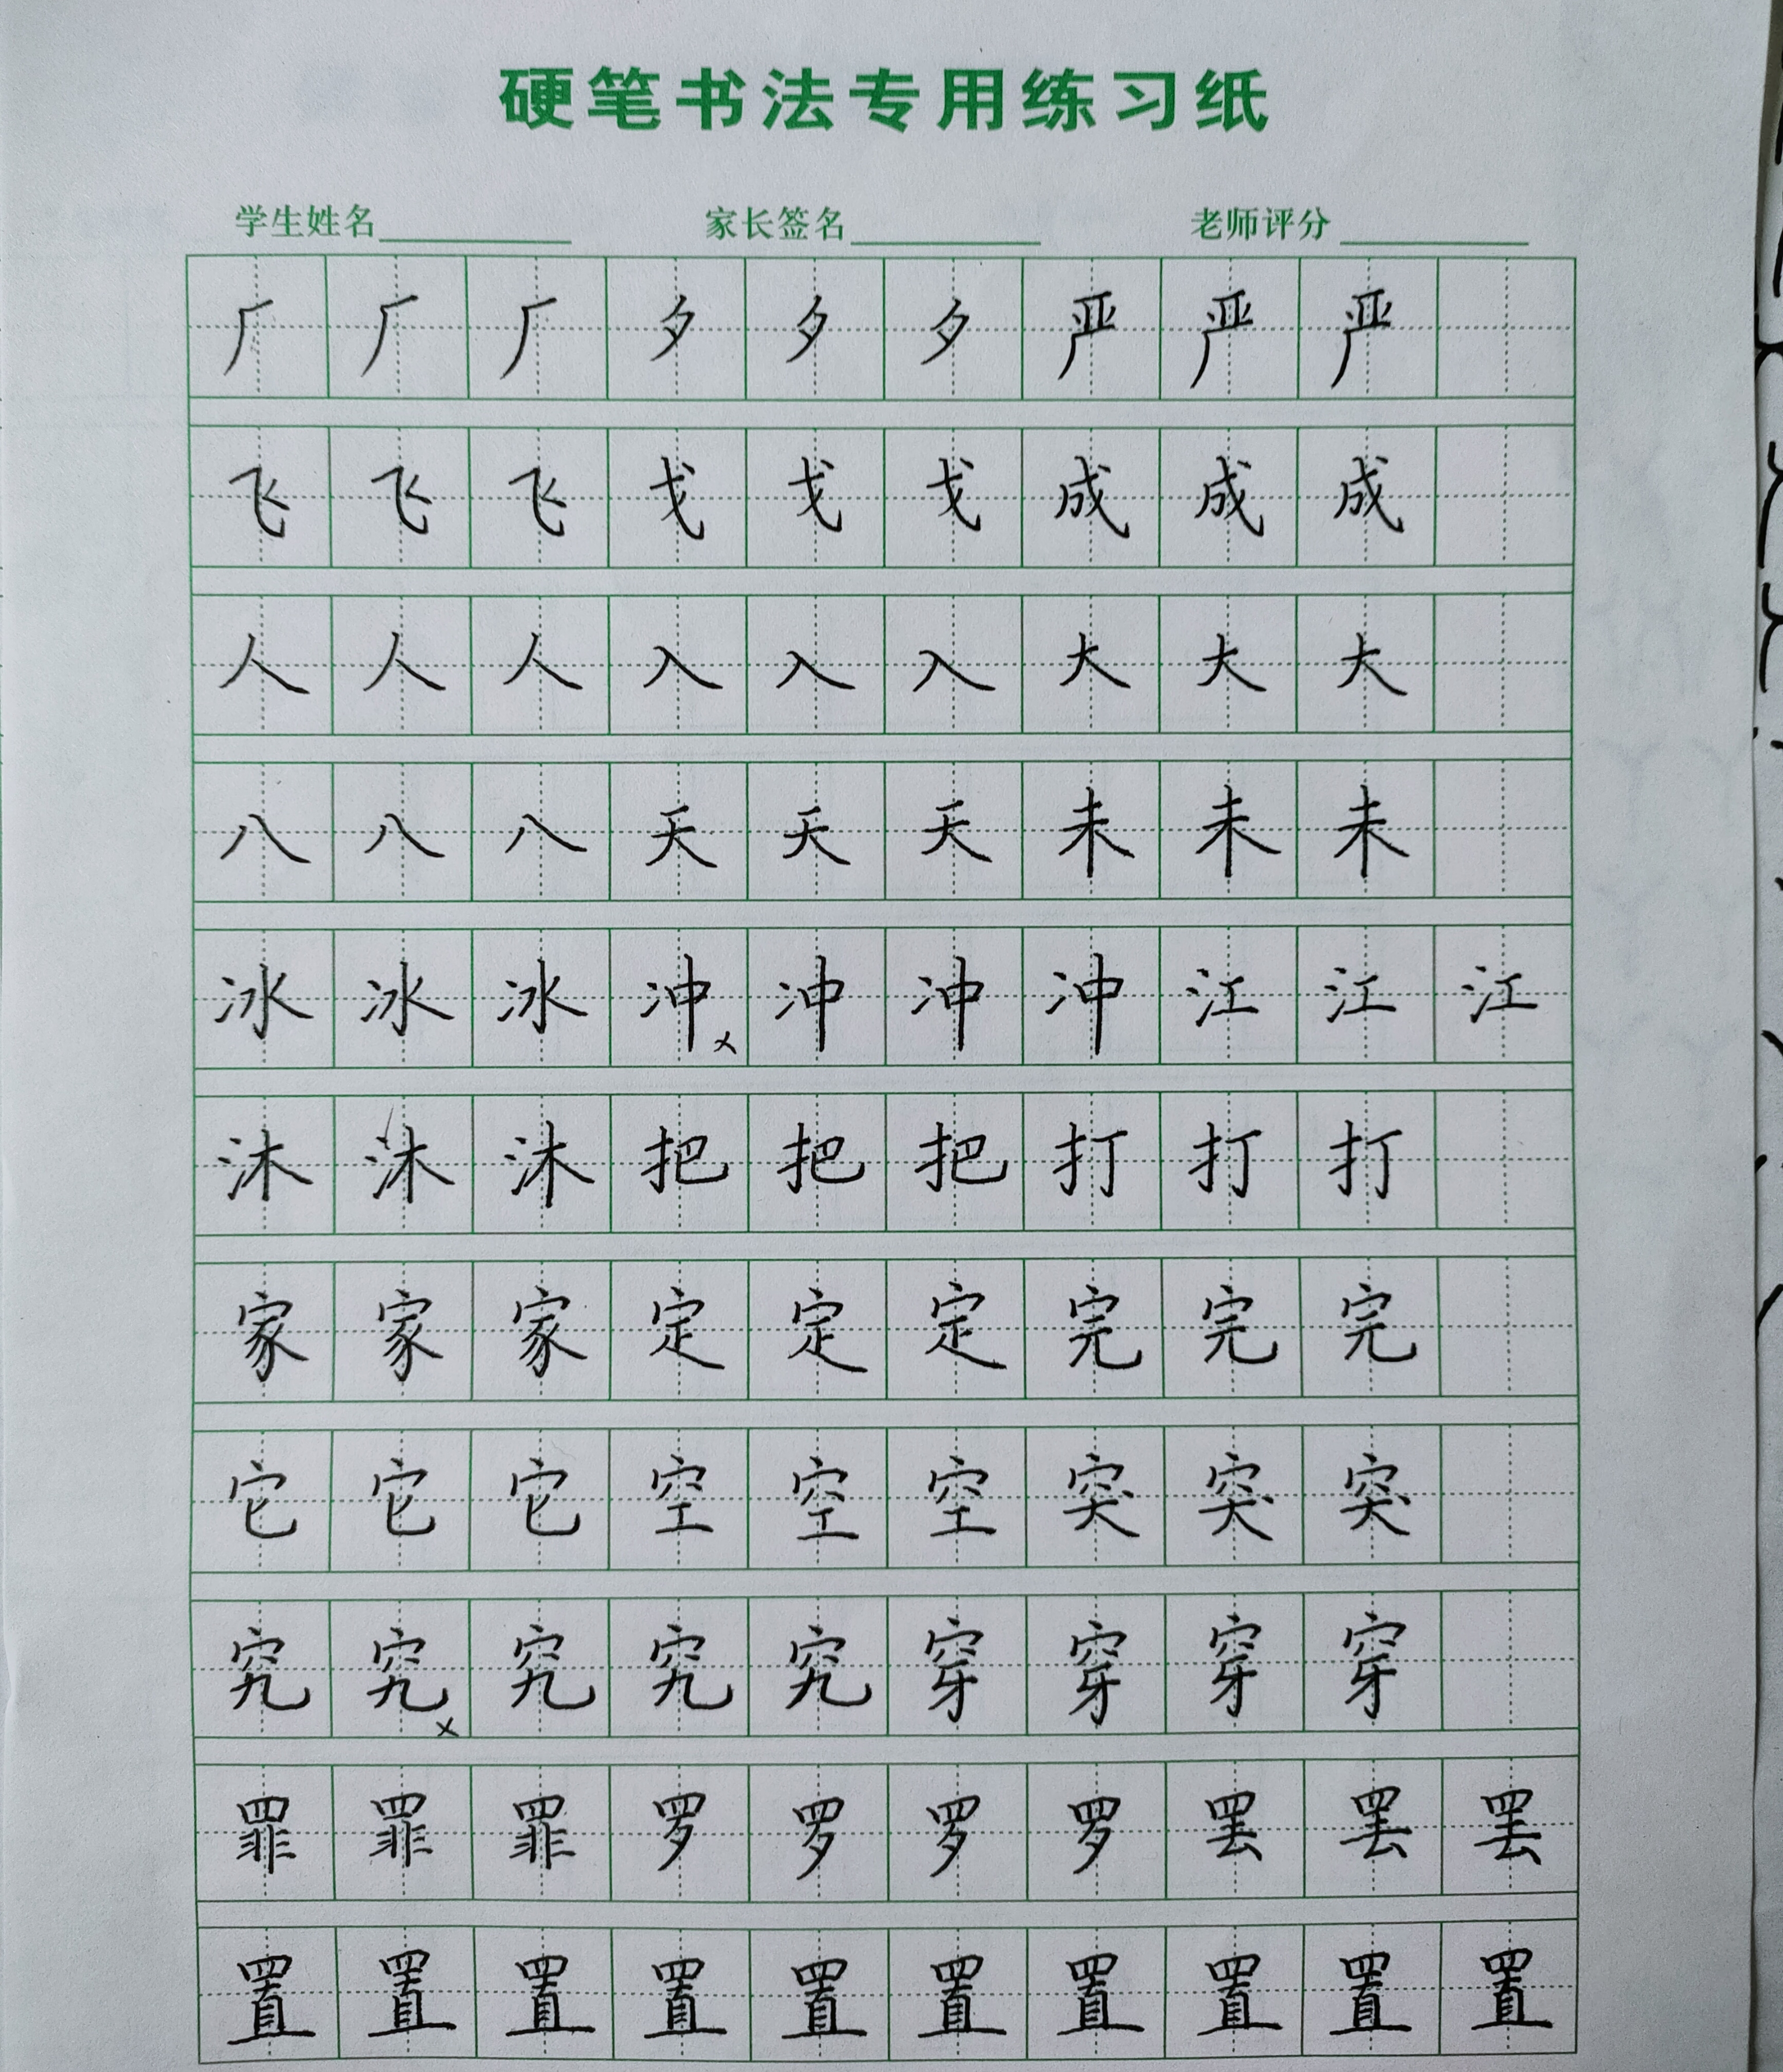 硬笔书法专用练习纸
学生姓名 家长签名 老师评分
厂厂厂夕夕夕严严严
飞飞飞戈戈戈成成成
人人人入入入大大大
八八八天天天未未未
冰冰冰冲×冲冲冲江江江
沐沐沐把把把打打打
家家家定定定完完完
它它它空空空突突突
究究×究究究穿穿穿穿
罪罪罪罗罗罗罗罢罢罢
置置置置置置置置置置